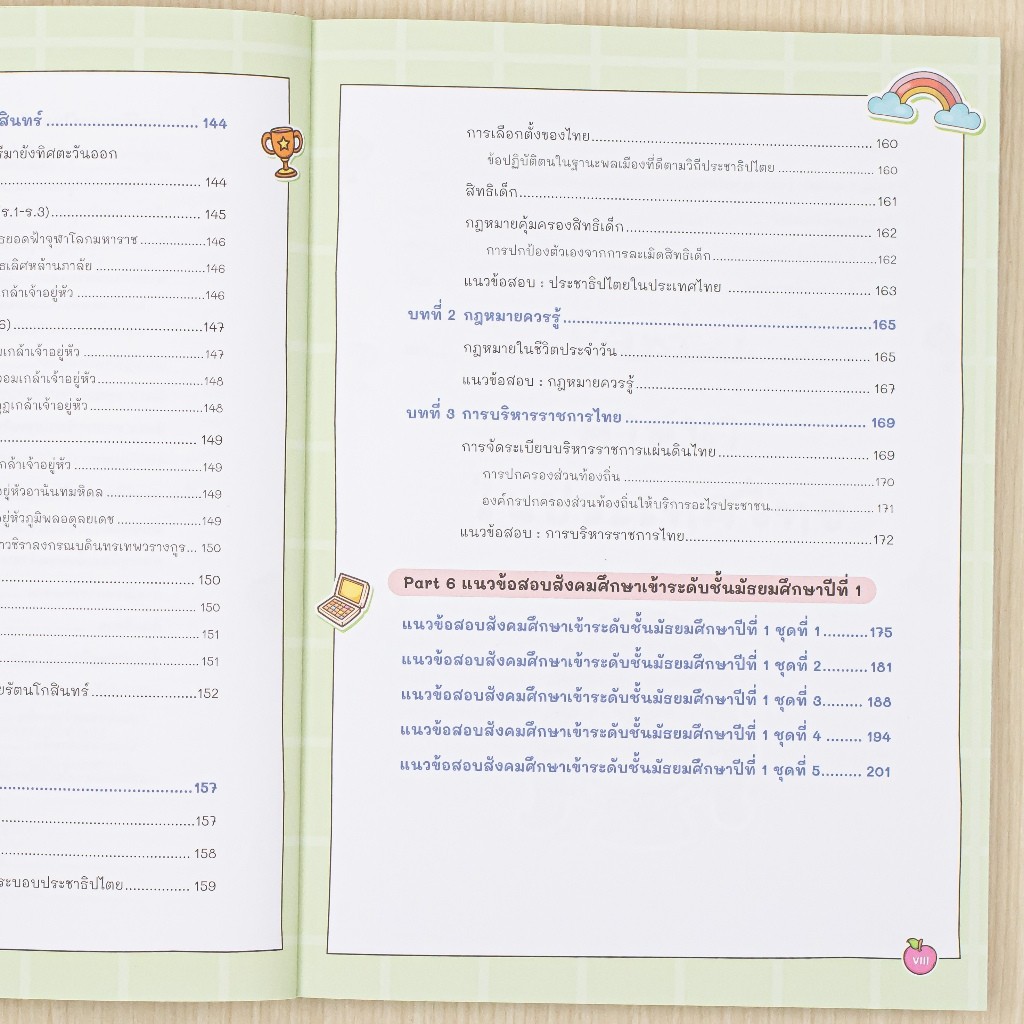 สินทร์ ................................. 144
มายังทิศตะวันออก
................................. 144
ร.1-ร.3)................................. 145
ยอดฟ้าจุฬาโลกมหาราช .................146
ธเลิศหล้านภาลัย .................146
กล้าเจ้าอยู่หัว .................146
6).................................147
มเกล้าเจ้าอยู่หัว .................147
จอมเกล้าเจ้าอยู่หัว.................148
ฎเกล้าเจ้าอยู่หัว.................148
................................. 149
กล้าเจ้าอยู่หัว .................149
อยู่หัวอานันทมหิดล .................149
อยู่หัวภูมิพลอดุลยเดช .................149
าวชิราลงกรณบดินทรเทพวรางกูร... 150
................................. 150
................................. 150
................................. 151
................................. 151
ยรัตนโกสินทร์.................152
.................................157
.................................157
................................. 158
ระบอบประชาธิปไตย................. 159
การเลือกตั้งของไทย................................. 160
ข้อปฏิบัติตนในฐานะพลเมืองที่ดีตามวิถีประชาธิปไตย ................. 160
สิทธิเด็ก.................................161
กฎหมายคุ้มครองสิทธิเด็ก................................. 162
การปกป้องตัวเองจากการละเมิดสิทธิเด็ก.................162
แนวข้อสอบ : ประชาธิปไตยในประเทศไทย ................. 163
บทที่ 2 กฎหมายควรรู้.................................165
กฎหมายในชีวิตประจำวัน ................................. 165
แนวข้อสอบ : กฎหมายควรรู้................................. 167
บทที่ 3 การบริหารราชการไทย ................................. 169
การจัดระเบียบบริหารราชการแผ่นดินไทย................. 169
การปกครองส่วนท้องถิ่น .................................170
องค์กรปกครองส่วนท้องถิ่นให้บริการอะไรประชาชน................. 171
แนวข้อสอบ : การบริหารราชการไทย.................172
Part 6 แนวข้อสอบสังคมศึกษาเข้าระดับชั้นมัธยมศึกษาปีที่ 1
แนวข้อสอบสังคมศึกษาเข้าระดับชั้นมัธยมศึกษาปีที่ 1 ชุดที่ 1..........175
แนวข้อสอบสังคมศึกษาเข้าระดับชั้นมัธยมศึกษาปีที่ 1 ชุดที่ 2.......... 181
แนวข้อสอบสังคมศึกษาเข้าระดับชั้นมัธยมศึกษาปีที่ 1 ชุดที่ 3......... 188
แนวข้อสอบสังคมศึกษาเข้าระดับชั้นมัธยมศึกษาปีที่ 1 ชุดที่ 4 ........ 194
แนวข้อสอบสังคมศึกษาเข้าระดับชั้นมัธยมศึกษาปีที่ 1 ชุดที่ 5......... 201
VIII